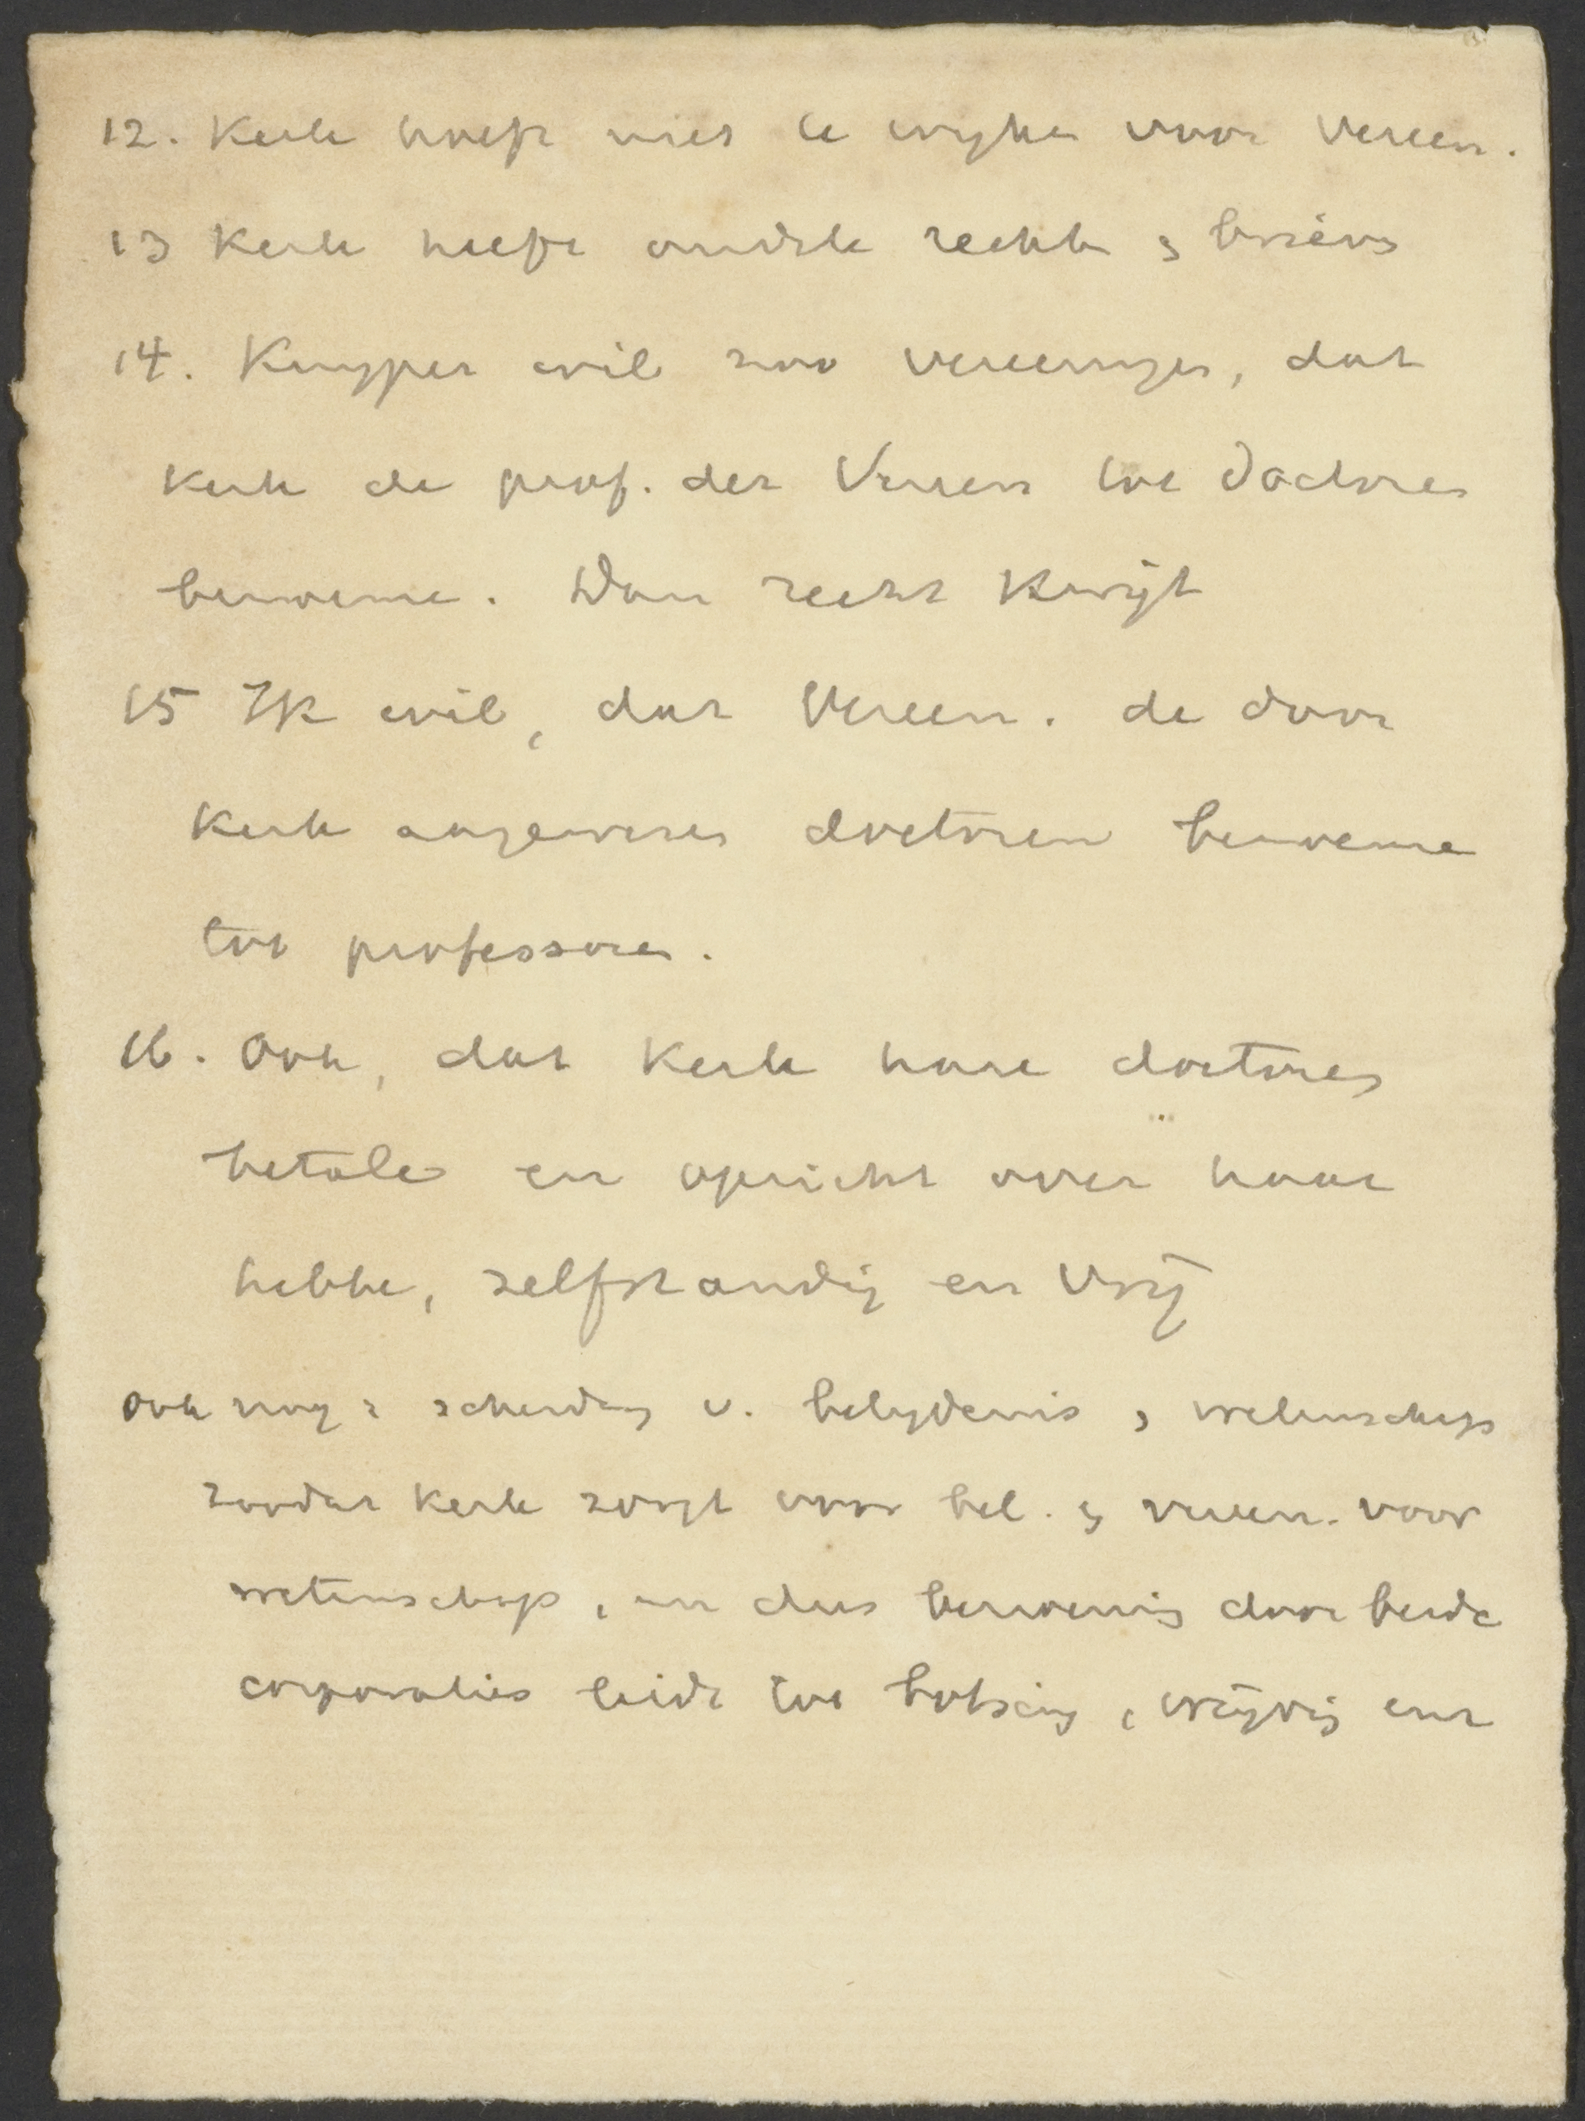 12. Kerk hoeft niet te wyken voor Vereen.
13 Kerk heeft oudste rechten & brieven
14. Kuyper wil zoo vereenigen, dat
Kerk de prof. der Vereen tot doctores
benoeme. Dan recht kwijt
15 Ik wil, dat Vereen. de door
Kerk aangewezen doctoren benoeme
tot professoren.
16. Ook, dat Kerk hare doctores
betale en opzicht over haar
hebbe, zelfstandig en vrij
Ook nog: scheiding v. belydenis & wetenschap
zoodat Kerk zorgt voor bel. & vereen. voor
wetenschap, en dus benoeming door beide
corporaties leidt tot botsing, wrijving enz